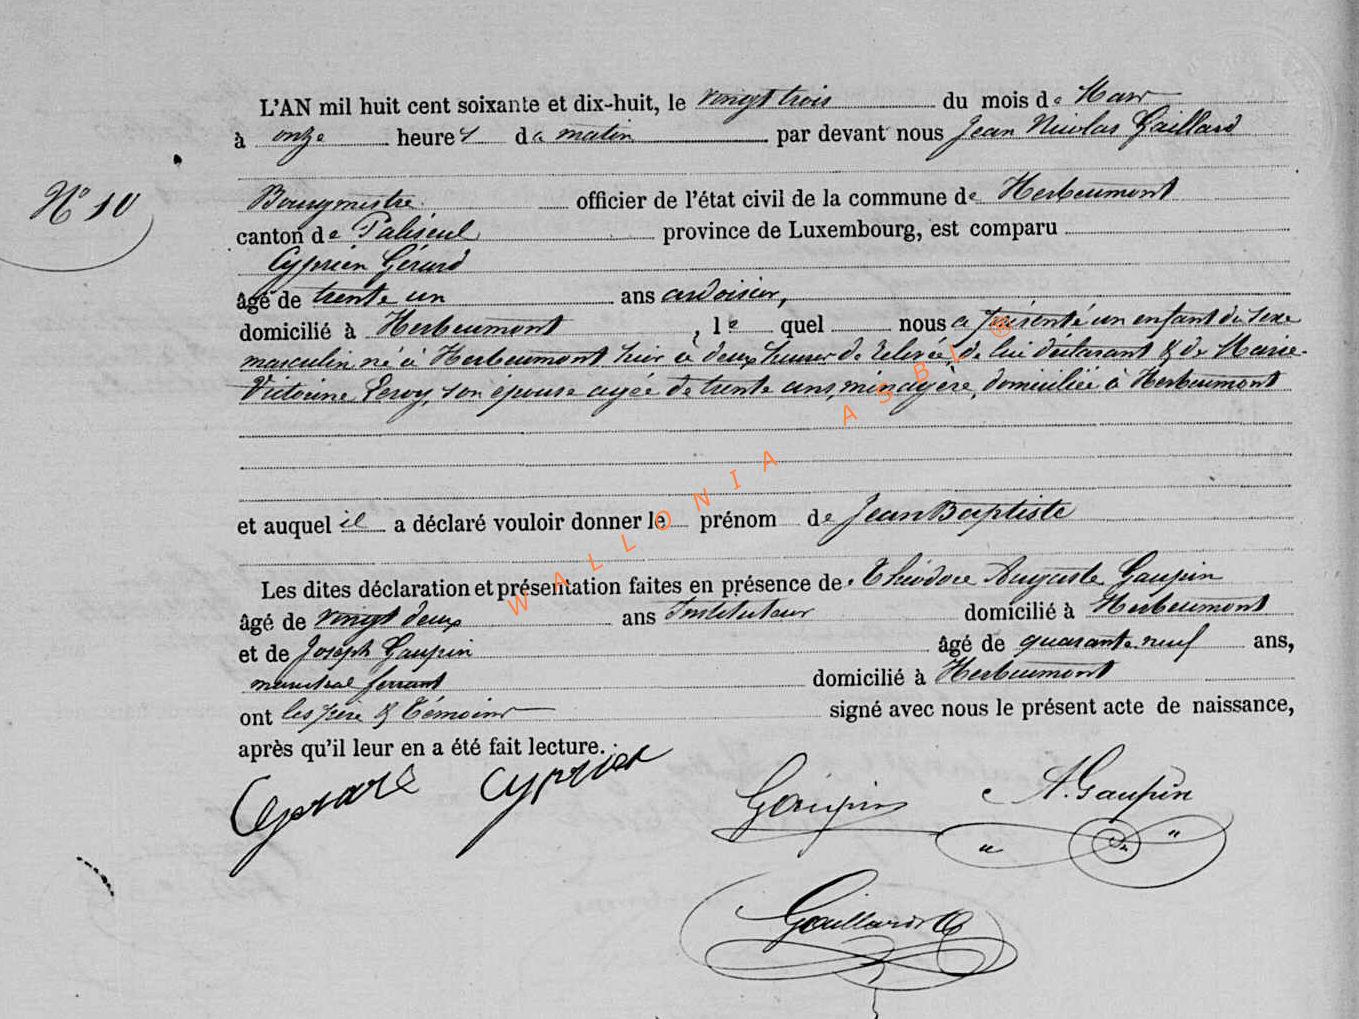 L'AN mil huit cent soixante et dix-huit, le vingt trois du mois de Mars
à onze heures du matin par devant nous Jean Nicolas Gaillard
N° 10
Bourgmestre officier de l'état civil de la commune de Herbeumont
canton de Paliseul province de Luxembourg, est comparu
Cyprien Gérard
âgé de trente un ans ardoisier,
domicilié à Herbeumont, le quel nous a présenté un enfant du sexe
masculin né à Herbeumont hier à deux heures de relevée, de lui déclarant & de Marie-
Victorine Leroy, son épouse agée de trente ans, ménagère, domiciliée à Herbeumont
et auquel il a déclaré vouloir donner le prénom de Jean Baptiste
Les dites déclaration et présentation faites en présence de Théodore Auguste Gaupin
âgé de vingt deux ans Instituteur domicilié à Herbeumont
et de Joseph Gaupin âgé de quarante neuf ans,
maréchal ferrant domicilié à Herbeumont
ont les père & témoins signé avec nous le présent acte de naissance,
après qu'il leur en a été fait lecture.
Gerard Cyprien
Goupin A. Gaupin
Gaillard
WALLONIA ASBL ®